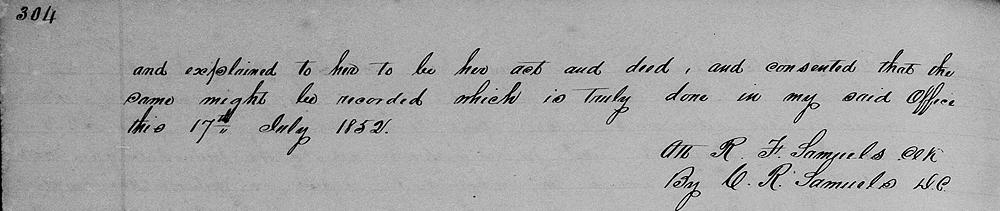 304
and explained to her to be her act and deed, and consented that the
same might be recorded which is truly done in my said Office
this 17th July 1852.
Att R. F. Samuels Clk
By C. R. Samuels D.C.